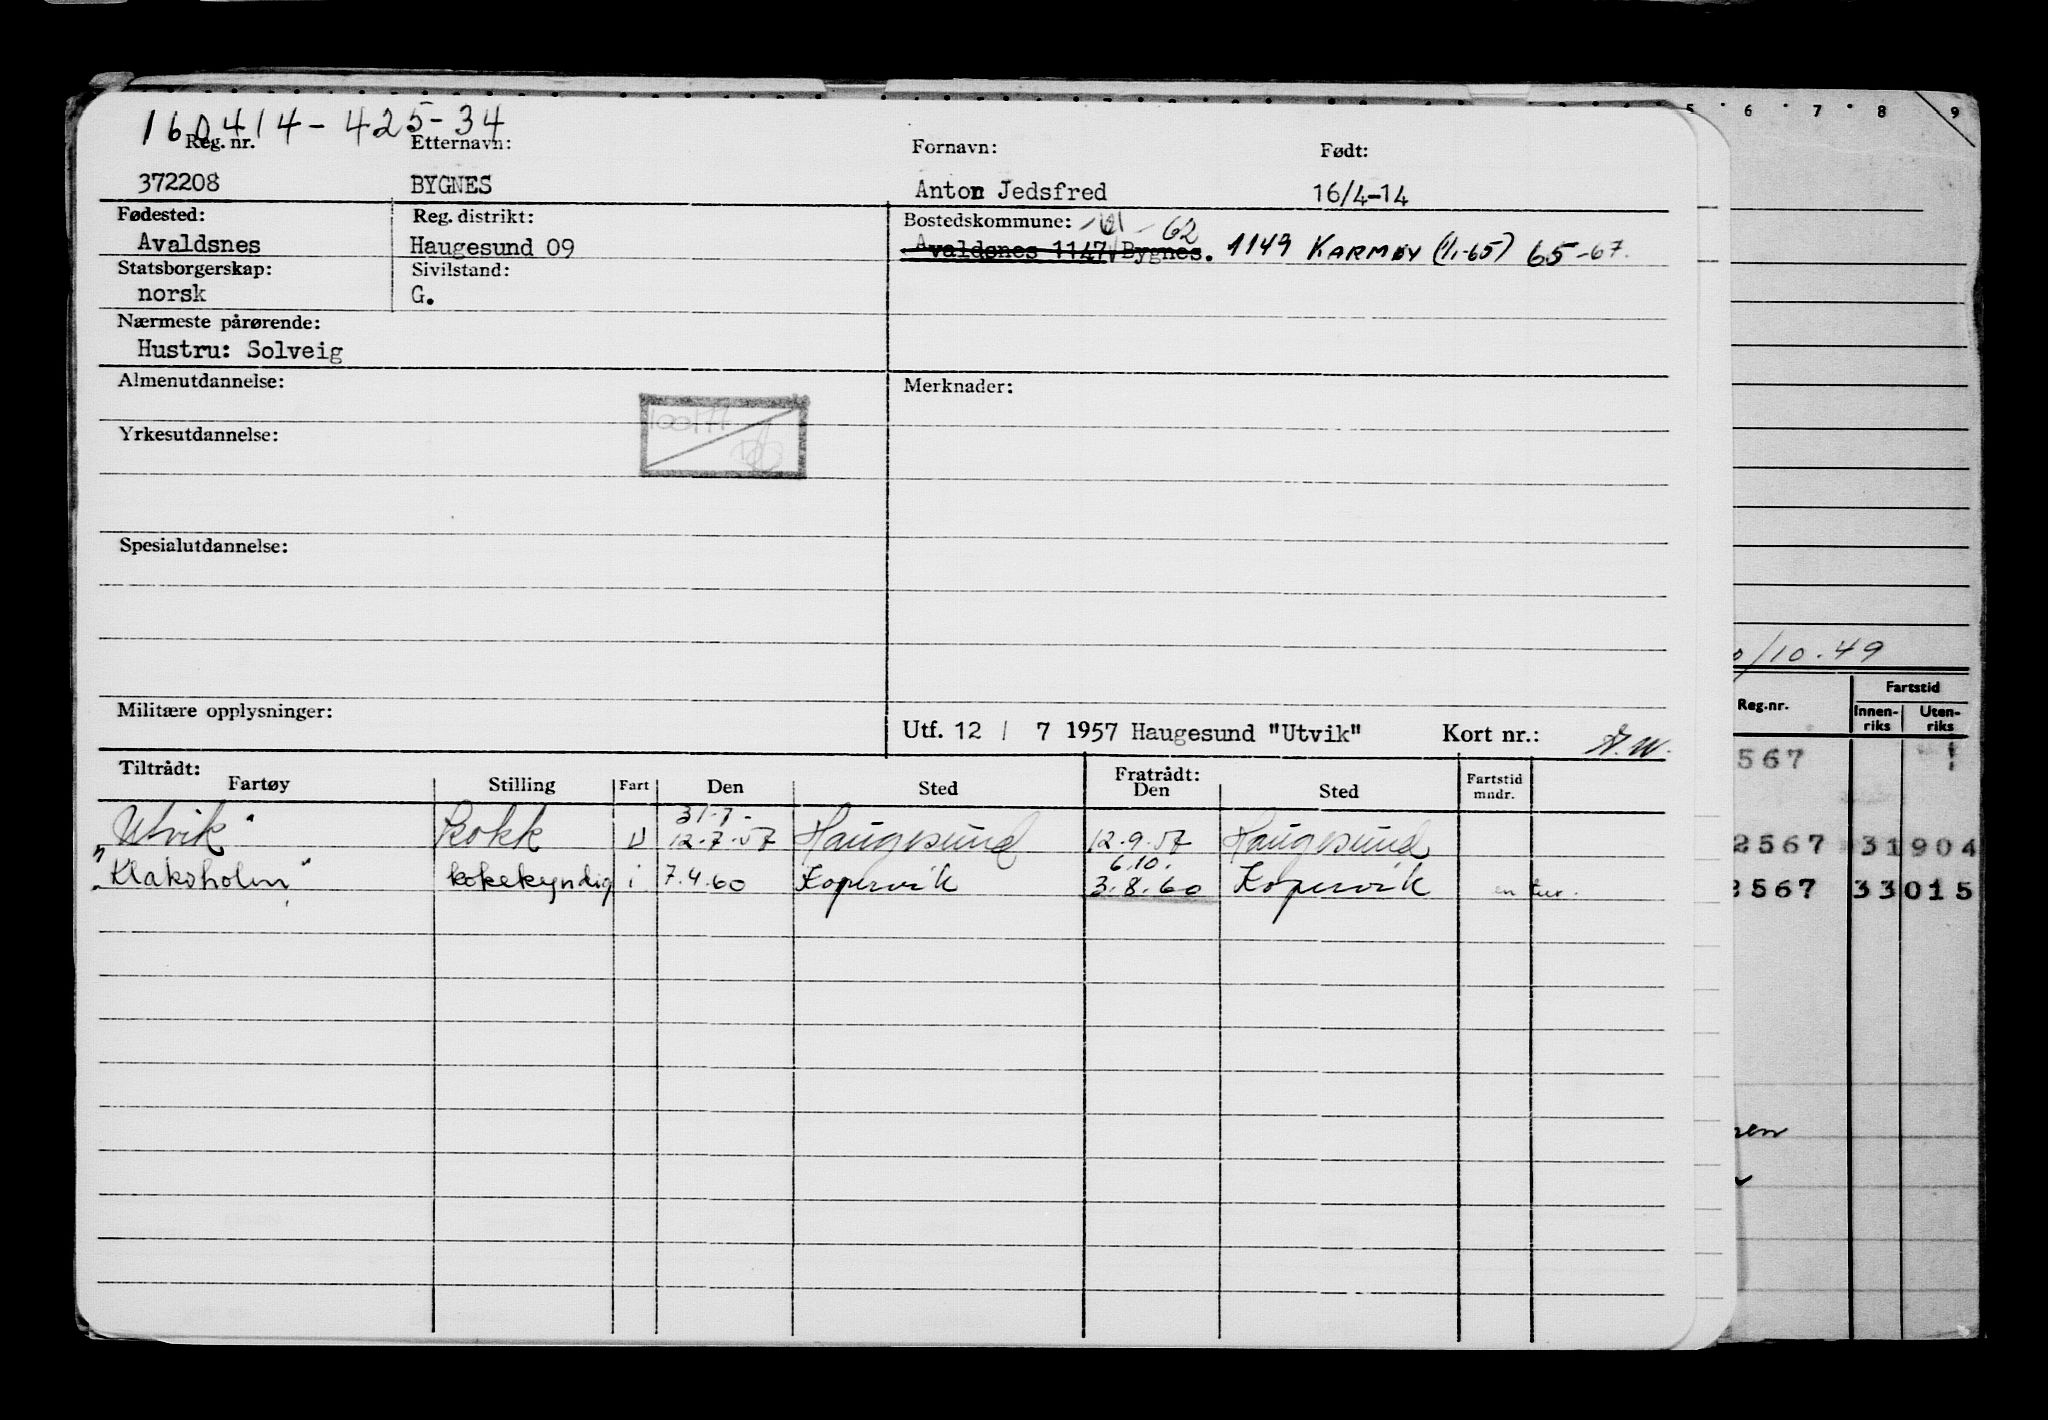 160414-425-34
Reg. nr. Etternavn: Fornavn: Født:
372208 BYGNES Anton Jedsfred 16/4-14
Fødested: Reg. distrikt: Bostedskommune: -61-62
Avaldsnes Haugesund 09 Avaldsnes 1147 Bygnes. 1149 KARMØY (1/1-65) 65-67.
Statsborgerskap: Sivilstand:
norsk G.
Nærmeste pårørende:
Hustru: Solveig
Almenutdannelse: Merknader:
Yrkesutdannelse:
Spesialutdannelse:
Militære opplysninger:
Utf. 12 / 7 1957 Haugesund "Utvik" Kort nr.:
Tiltrådt: Fratrådt:
Fartøy Stilling Fart Den Sted Den Sted Fartstid mndr.
Utvik" Kokk U 12.7.57 Haugesund 12.9.57 Haugesund
6.10.
"Klaksholm" kokekyndig i 7.4.60 Kopervik 3.8.60 Kopervik en tur.
5 6 7 8 9
/10.49
Reg.nr. Fartstid
Innen-riks Uten-riks
567
2567 31 904
2567 33 015